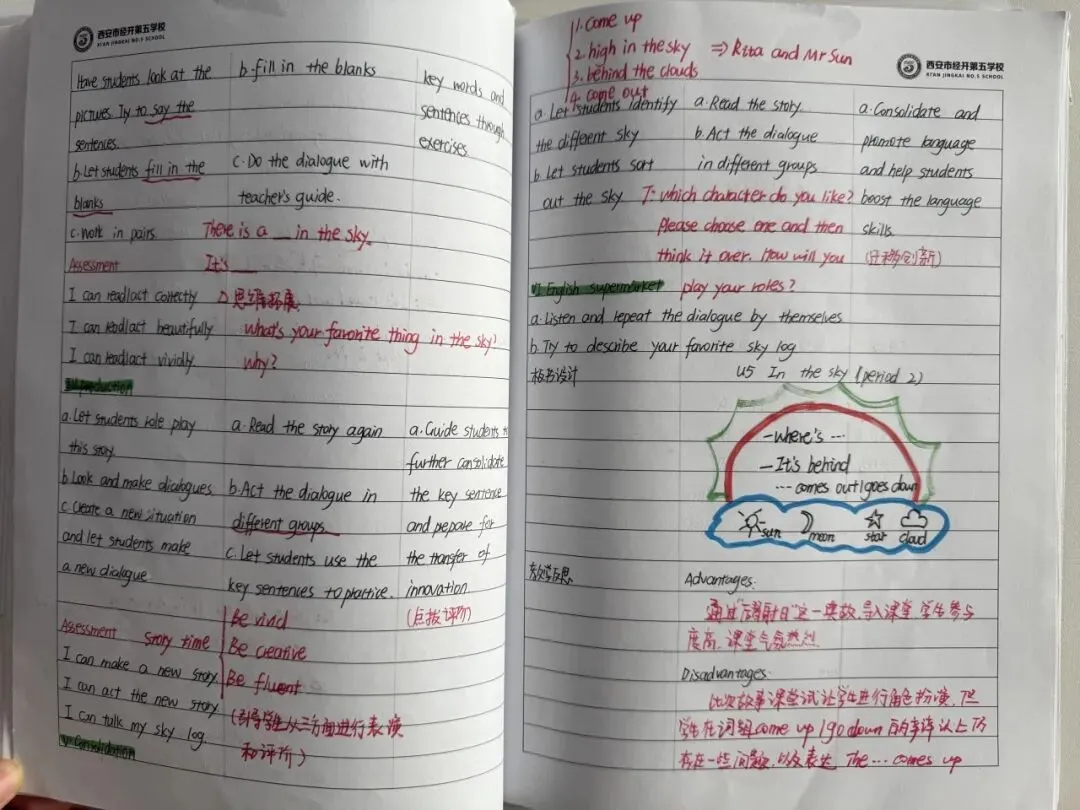 西安市经开第五学校
XI'AN JINGKAI NO.5 SCHOOL
Have students look at the
pictures. Try to say the
sentences.
b. Let students fill in the
blanks
c. Work in pairs.
Assessment
I can read/act correctly
I can read/act beautifully
I can read/act vividly.
b. fill in the blanks
c. Do the dialogue with
teacher's guide.
There is a __ in the sky.
It's __
思维拓展
What's your favorite thing in the sky?
Why?
key words and
sentences through
exercises
production
a. Let students role play
this story.
b. Look and make dialogues
c. Create a new situation
and let students make
a new dialogue
a. Read the story again
b. Act the dialogue in
different groups.
c. Let students use the
key sentences to practice.
a. Guide students to
further consolidate
the key sentence
and prepare for
the transfer of
innovation.
(点拨评价)
Assessment
I can make a new story.
I can act the new story
I can talk my sky log
Story time
Be vivid
Be creative
Be fluent
(引导学生从三方面进行表演
和评价)
V Consolidation
1. come up
2. high in the sky ⇒ Rita and Mr Sun
3. behind the clouds
4. come out
西安市经开第五学校
XI'AN JINGKAI NO.5 SCHOOL
a. Let students identify
the different sky
b. Let students sort
out the sky
a. Read the story.
b. Act the dialogue
in different groups
T: which character do you like?
Please choose one and then
think it over. How will you
play your roles?
a. Consolidate and
promote language
and help students
boost the language
skills.
(迁移创新)
VI English supermarket
a. Listen and repeat the dialogue by themselves
b. Try to describe your favorite sky log
板书设计
U5 In the sky (period 2)
-Where's ...
-It's behind
... comes out/goes down
sun
moon
star
cloud
教学反思
Advantages:
通过"后羿射日"这一典故,导入课堂,学生参与
度高,课堂气氛热烈.
Disadvantages:
比次故事课尝试让学生进行角色扮演,但
学生在词组come up/go down 的
存在一些问题,以及表达 The ... comes up